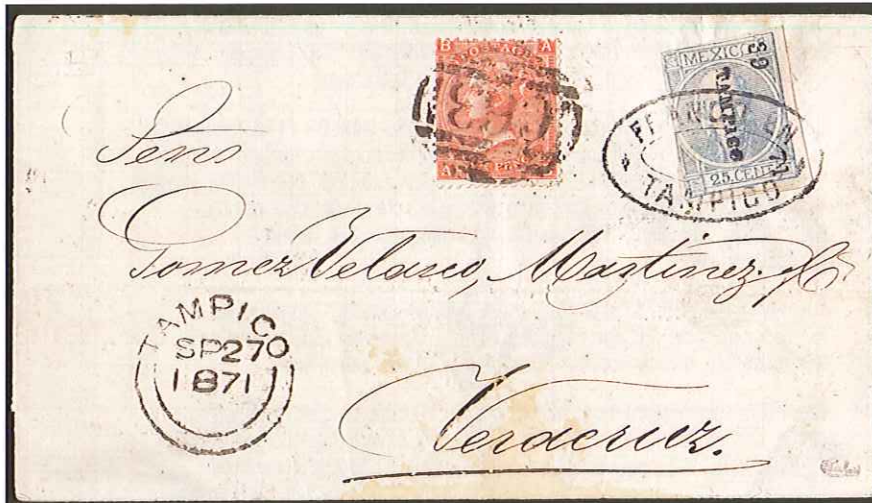 B A
POSTAGE
A
MEXICO
39
TAMPICO
71
25 CENT
FRANCO EN
TAMPICO
Sens
Gomez Velasco, Martinez y C
TAMPICO
SP27
1871
Veracruz.